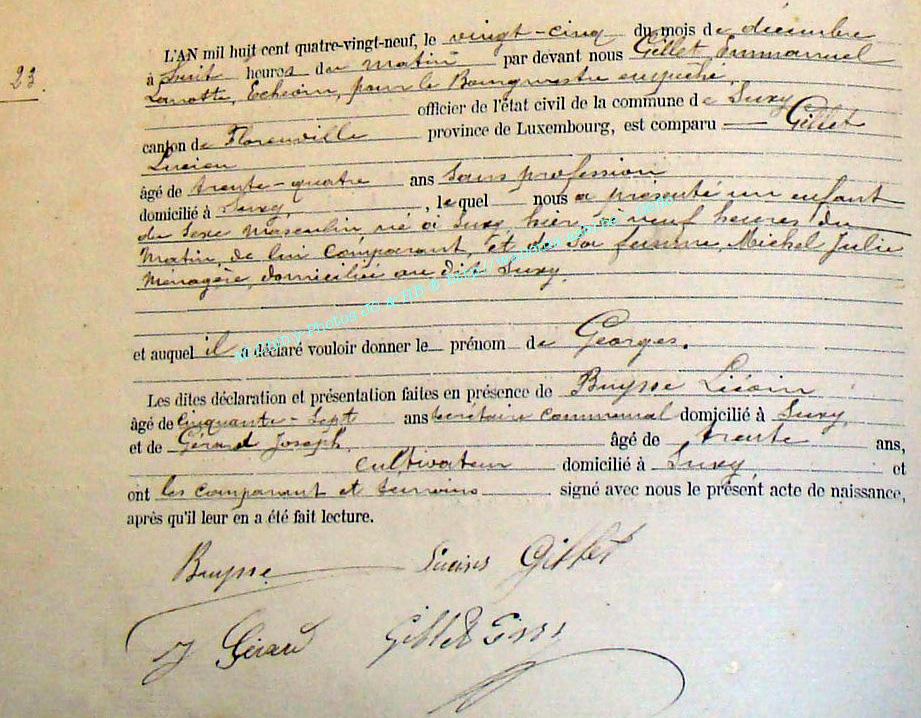 23.
L'AN mil huit cent quatre-vingt-neuf, le vingt-cinq du mois de décembre
à huit heures du matin par devant nous Gillet Emmanuel
Lamotte, Echevin, pour le Bourgmestre empêché,
officier de l'état civil de la commune de Suxy
canton de Florenville province de Luxembourg, est comparu Gillet
Lucien
âgé de trente-quatre ans Sans profession
domicilié à Suxy, , lequel nous a présenté un enfant
du sexe masculin né à Suxy, hier, à neuf heures du
matin, de lui comparant, et de sa femme, Michel Julie
Ménagère, domiciliée au dit Suxy.
et auquel il a déclaré vouloir donner le prénom de Georges.
Les dites déclaration et présentation faites en présence de Buysse
âgé de cinquante-sept ans secrétaire communal domicilié à Suxy,
et de Gérard Joseph, âgé de trente ans,
cultivateur domicilié à Suxy, et
ont les comparant et témoins signé avec nous le présent acte de naissance,
après qu'il leur en a été fait lecture.
Buysse Lucien Gillet
J Gérard Gillet